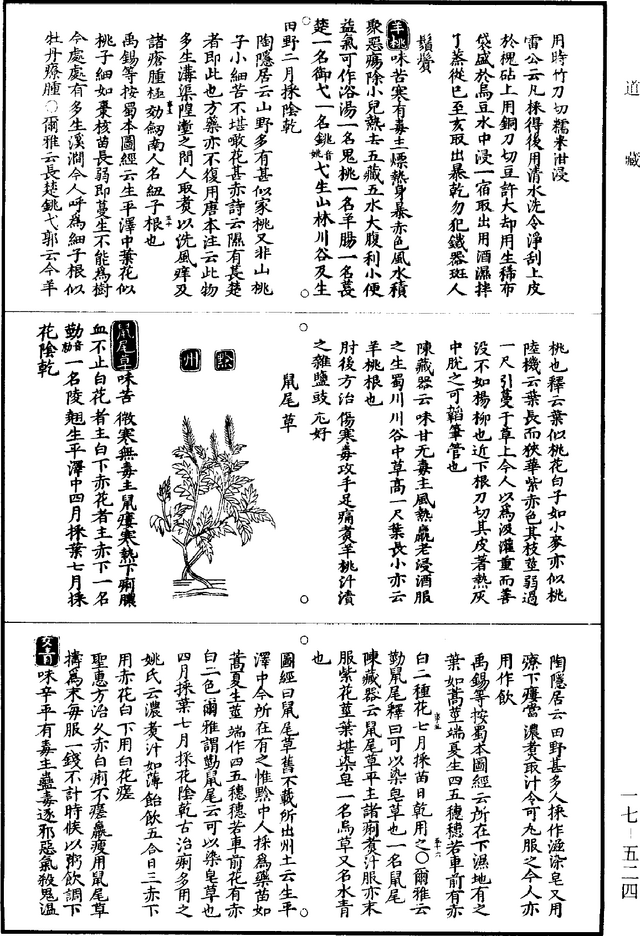 道藏
用時竹刀切糯米泔浸
雷公云凡採得後用清水洗令淨刮上皮
於槐砧上用銅刀切豆許大却用生稀布
袋盛於烏豆水中浸一宿取出用酒濕拌
了蒸從巳至亥取出暴乾勿犯鐵器斑人
鬚鬢
羊桃味苦寒有毒主熛熱身暴赤色風水積
聚惡瘍除小兒熱去五藏五水大腹利小便
益氣可作浴湯一名鬼桃一名羊腸一名萇
楚一名御弋一名銚音姚弋生山林川谷及生
田野二月採陰乾
陶隱居云山野多有甚似家桃又非山桃
子小細苦不堪噉花甚赤詩云隰有萇楚
者即此也方藥亦不復用唐本注云此物
多生溝渠隍壍之間人取煑以洗風痒及
諸瘡腫極効劒南人名細子根也
禹錫等按蜀本圖經云生平澤中葉花似
桃子細如棗核苗長弱即蔓生不能爲樹
今處處有多生溪澗今人呼爲細子根似
牡丹療腫○爾雅云長楚銚弋郭云今羊
桃也釋云葉似桃花白子如小麥亦似桃
陸機云葉長而狹華紫赤色其枝莖弱過
一尺引蔓于草上今人以爲汲灌重而善
没不如楊柳也近下根刀切其皮著熱灰
中脫之可韜筆管也
陳藏器云味甘无毒主風熱羸老浸酒服
之生蜀川川谷中草高一尺葉長小亦云
羊桃根也
肘後方治傷寒毒攻手足痛煑羊桃汁漬
之雜鹽豉尤好
鼠尾草
黔州
鼠尾草味苦微寒無毒主鼠瘻寒熱下痢膿
血不止白花者主白下赤花者主赤下一名
勤音勍一名陵翹生平澤中四月採葉七月採
花陰乾
陶隱居云田野甚多人採作滋染皂又用
療下瘻當濃煑取汁令可丸服之今人亦
用作飲
禹錫等按蜀本圖經云所在下濕地有之
葉如蒿莖端夏生四五穗穗若車前有赤
白二種花七月採苗日乾用之○爾雅云
勤鼠尾釋曰可以染皂草也一名鼠尾
陳藏器云鼠尾草平主諸痢煑汁服亦末
服紫花莖葉堪染皂一名烏草又名水青
也
圖經曰鼠尾草舊不載所出州土云生平
澤中今所在有之惟黔中人採爲藥苗如
蒿夏生莖端作四五穗穗若車前花有赤
白二色爾雅謂勤鼠尾云可以染皂草也
四月採葉七月採花陰乾古治痢多用之
姚氏云濃煑汁如薄飴飲五合日三赤下
用赤花白下用白花瘥
聖惠方治久赤白痢不瘥羸瘦用鼠尾草
擣爲末每服一錢不計時候以粥飲調下
女青味辛平有毒主蠱毒逐邪惡氣殺鬼温
一七—五二四